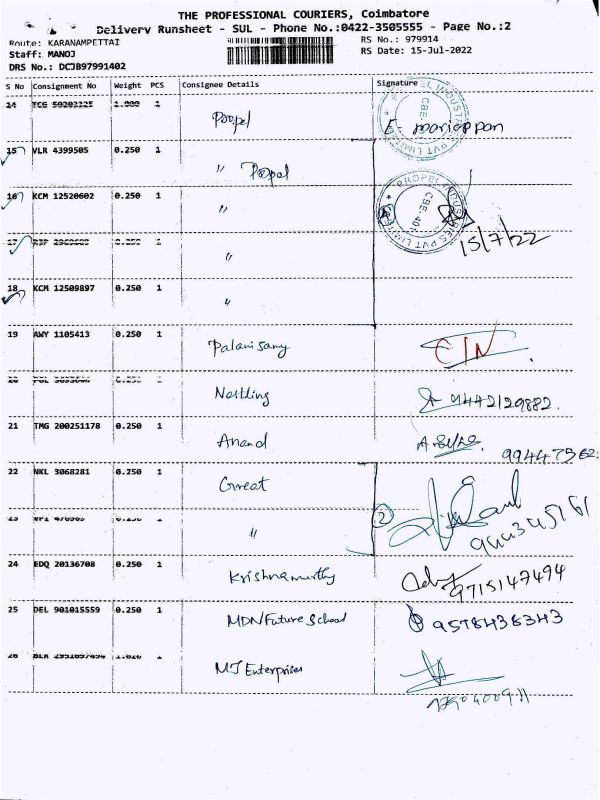 THE PROFESSIONAL COURIERS, Coimbatore
Delivery Runsheet - SUL - Phone No.:0422-3505555 - Page No.:2
Route: KARANAMPETTAI RS No.: 979914
Staff: MANOJ RS Date: 15-Jul-2022
DRS No.: DCJB97991402
S No Consignment No Weight PCS Consignee Details Signature
14 1.000 1 Propel E- mariappan
15 VLR 4399505 0.250 1 〃 Propel
16 KCM 12520602 0.250 1 〃
PROPEL INDUSTRIES PVT LIMITED CBE-401
15/7/22
17 0.250 1 〃
18 KCM 12509897 0.250 1 〃
19 AWY 1105413 0.250 1 Palanisamy C/N
20 0.250 1 Nestling 9442129882.
21 TMG 200251178 0.250 1 Anand 99447562
22 NKL 3068281 0.250 1 Great
2
23 0.250 1 〃
24 EDQ 20136708 0.250 1 Krishnamurthy 9715147494
25 DEL 901015559 0.250 1 MDN Future School 9578436343
26 1 MJ Enterprises